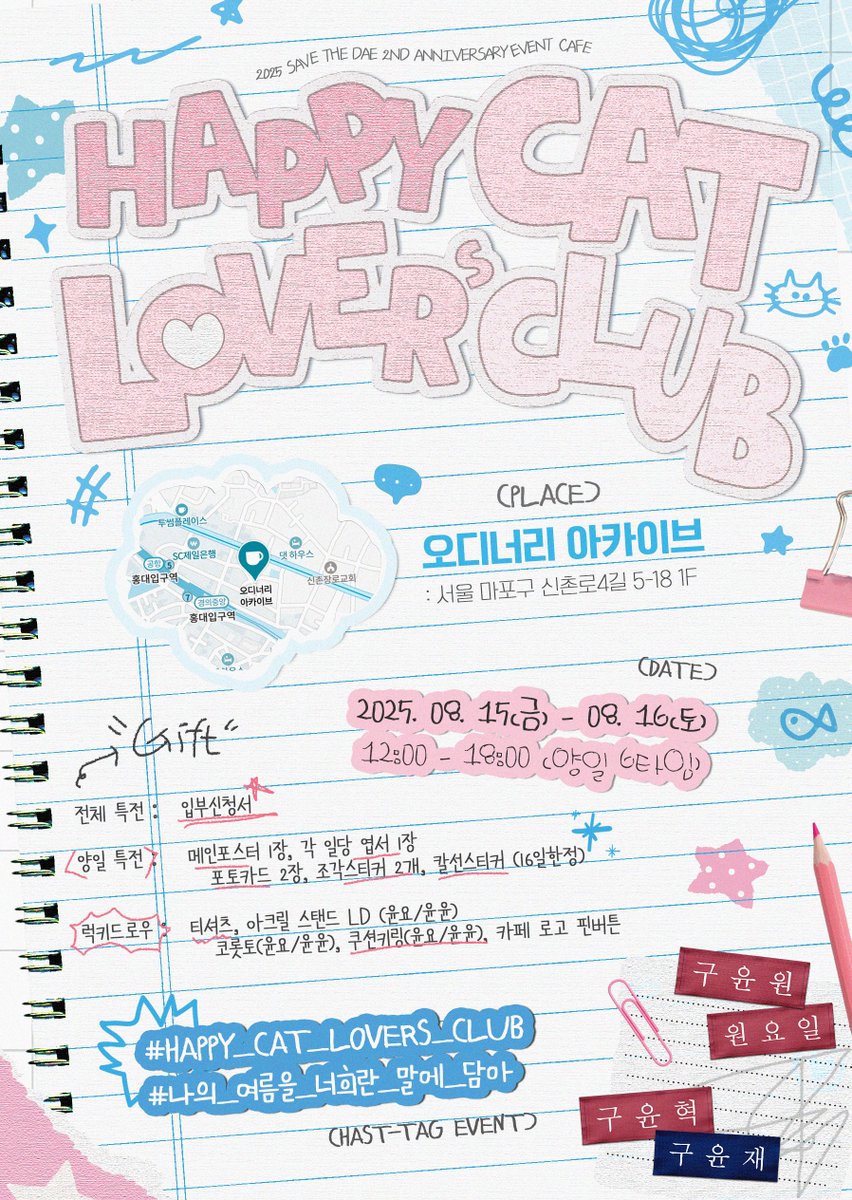 2025 SAVE THE DAE 2ND ANNIVERSARY EVENT CAFE
HAPPY CAT
LOVERS CLUB
(PLACE)
오디너리 아카이브
: 서울 마포구 신촌로4길 5-18 1F
투썸플레이스
SC제일은행
댓 하우스
공항 5
홍대입구역
오디너리
아카이브
신촌장로교회
7 경의중앙
홍대입구역
(DATE)
2025. 08. 15(금) - 08. 16(토)
12:00 - 18:00 (양일 6타임)
"Gift"
전체 특전 : 입부신청서
양일 특전 : 메인포스터 1장, 각 일당 엽서 1장
포토카드 2장, 조각스티커 2개, 칼선스티커 (16일한정)
럭키드로우 : 티셔츠, 아크릴 스탠드 LD (윤요/윤윤)
코롯토(윤요/윤윤), 쿠션키링(윤요/윤윤), 카페 로고 핀버튼
구윤원
원요일
구윤혁
구윤재
#HAPPY_CAT_LOVERS_CLUB
#나의_여름을_너희란_말에_담아
(HAST-TAG EVENT)